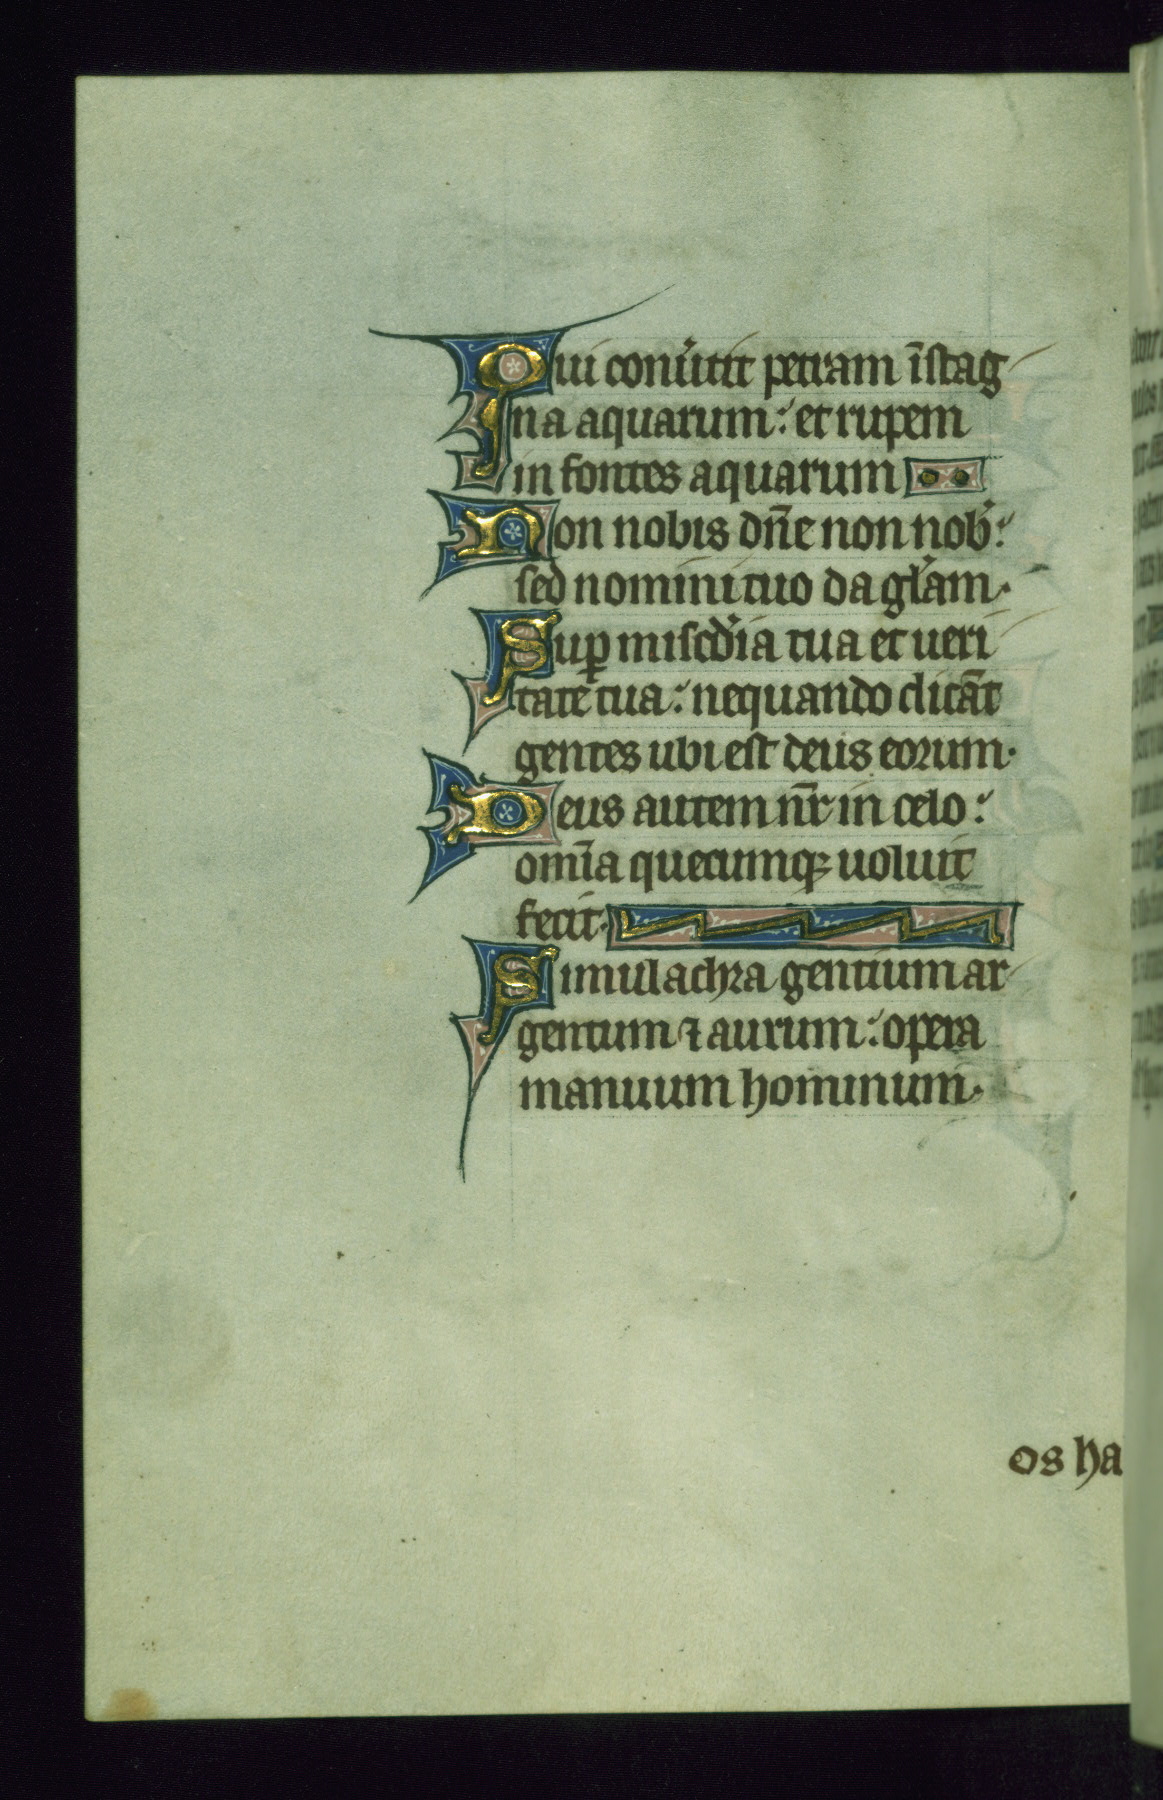 Qui conu̓tit petram īstag
na aquarum: et rupem
in fontes aquarum
Non nobis dn̄e non nob̓:
sed nomini tuo da gl̓am.
Suꝑ misc̓dia tua et ueri
tate tua: nequando dicāt
gentes ubi est deus eorum.
Deus autem nr̄ in celo:
omīa quecumqꝫ uoluit
fecit.
Simulachra gentium ar
gentum ⁊ aurum: opera
manuum hominum.
os ha